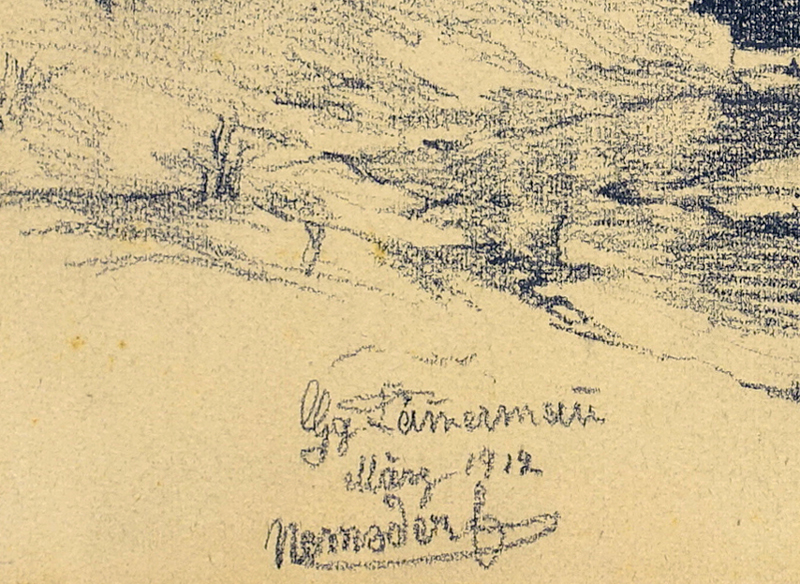 Gg Lam̄erman̄
März 1912
Nemsdorf